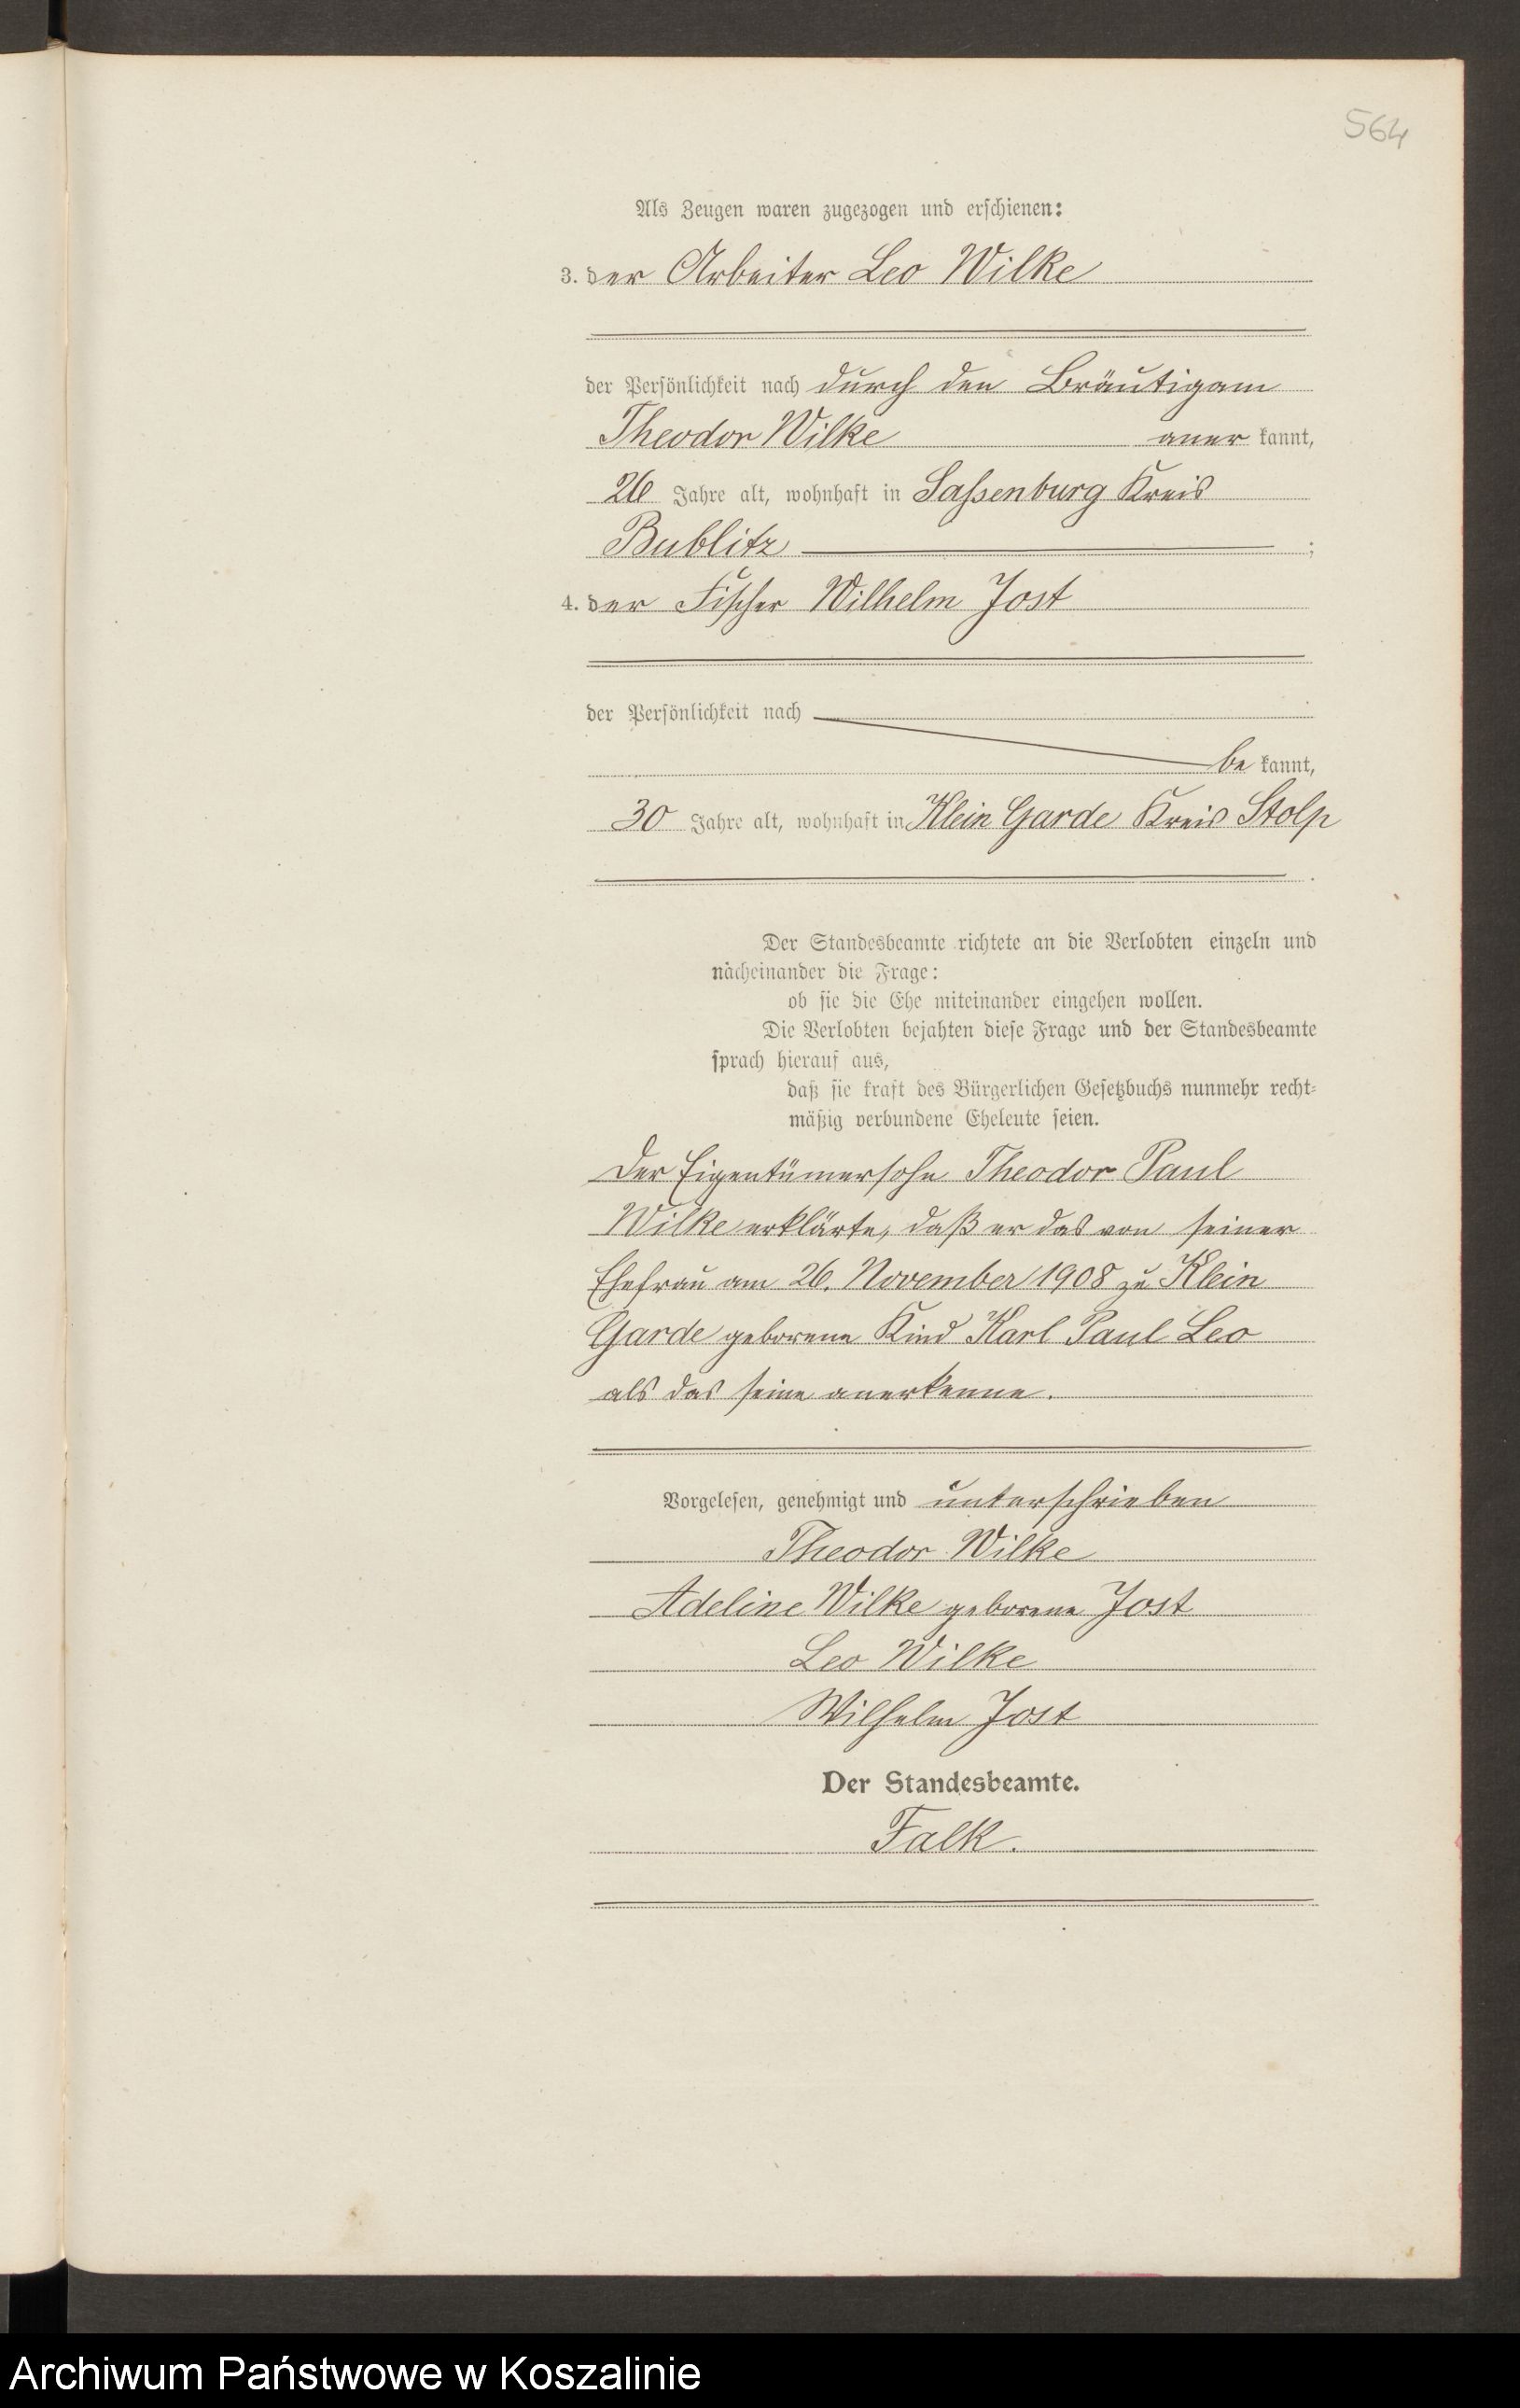 564
Als Zeugen waren zugezogen und erschienen:
3. der Arbeiter Leo Wilke
der Persönlichkeit nach durch den Bräutigam
Theodor Wilke aner kannt,
26 Jahre alt, wohnhaft in Sassenburg Kreis
Bublitz ;
4. der Fischer Wilhelm Jost
der Persönlichkeit nach
be kannt,
30 Jahre alt, wohnhaft in Klein Garde Kreis Stolp
.
Der Standesbeamte richtete an die Verlobten einzeln und
nacheinander die Frage:
ob sie die Ehe miteinander eingehen wollen.
Die Verlobten bejahten diese Frage und der Standesbeamte
sprach hierauf aus,
daß sie kraft des Bürgerlichen Gesetzbuchs nunmehr recht-
mäßig verbundene Eheleute seien.
Der Eigentümersohn Theodor Paul
Wilke erklärte, daß er das von seiner
Ehefrau am 26. November 1908 zu Klein
Garde geborene Kind Karl Paul Leo
als das seine anerkenne.
Vorgelesen, genehmigt und unterschrieben
Theodor Wilke
Adeline Wilke geborene Jost
Leo Wilke
Wilhelm Jost
Der Standesbeamte.
Falk.
Archiwum Państwowe w Koszalinie